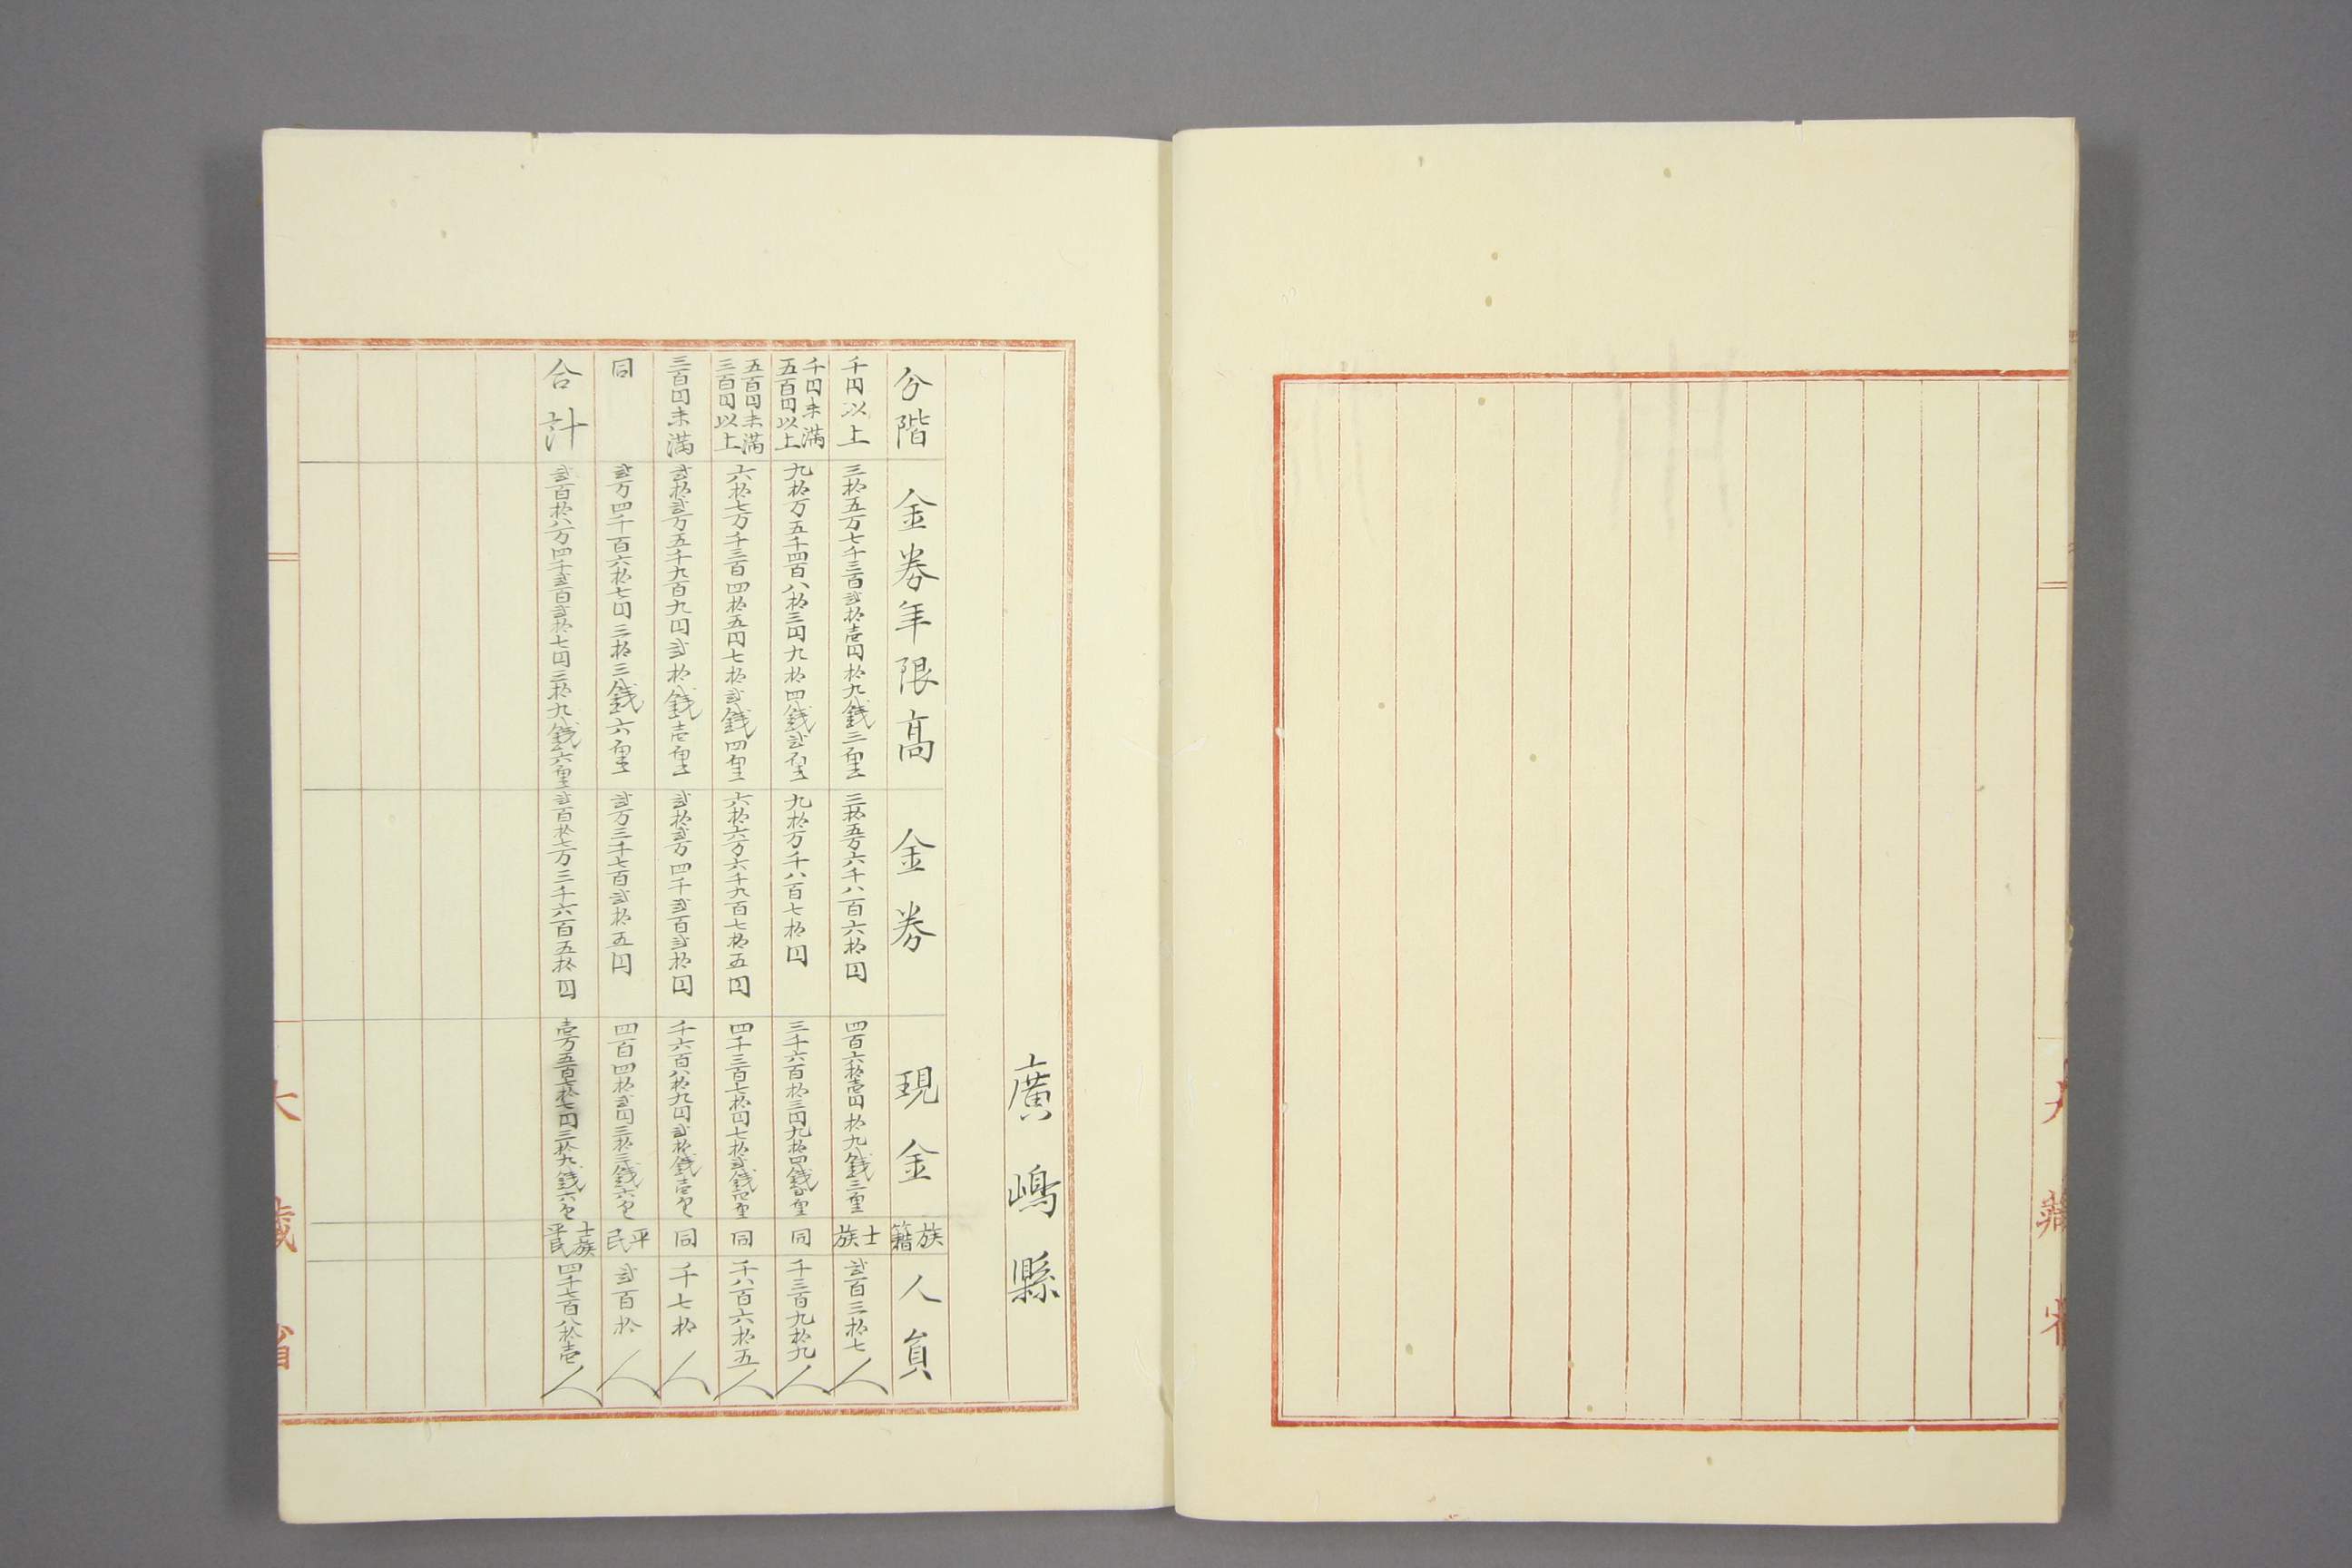 廣嶋縣
分階 金券年限高 金券 現金 族籍 人員
千円以上 三拾五万七千三百弐拾壱円拾九銭三厘 三拾五万六千八百六拾円 四百六拾壱円拾九銭三厘 士族 弐百三拾七人
千円未満五百円以上 九拾万五千四百八拾三円九拾四銭弐厘 九拾万千八百七拾円 三千六百拾三円九拾四銭弐厘 同 千三百九拾九人
五百円未満三百円以上 六拾七万千三百四拾五円七拾弐銭四厘 六拾六万六千九百七拾五円 四千三百七拾円七拾弐銭四厘 同 千八百六拾五人
三百円未満 弐拾弐万五千九百九円弐拾銭壱厘 弐拾弐万四千弐百弐拾円 千六百八拾九円弐拾銭壱厘 同 千七拾人
同 弐万四千百六拾七円三拾三銭六厘 弐万三千七百弐拾五円 四百四拾弐円三拾三銭六厘 平民 弐百拾人
合計 弐百拾八万四千弐百弐拾七円三拾九銭六厘 弐百拾七万三千六百五拾円 壱万五百七拾七円三拾九銭六厘 士族平民 四千七百八拾壱人
大藏省
大藏省